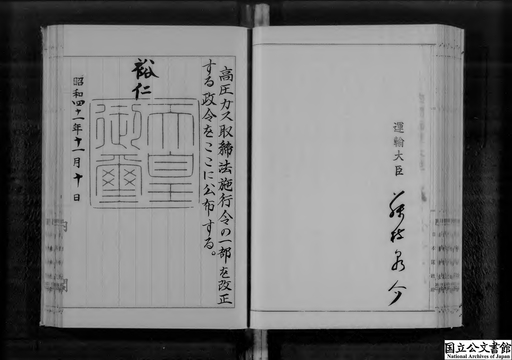 運輸大臣
高圧ガス取締法施行令の一部を改正
する政令をここに公布する。
裕仁
天皇
御璽
昭和四十一年十一月十日
国立公文書館
National Archives of Japan